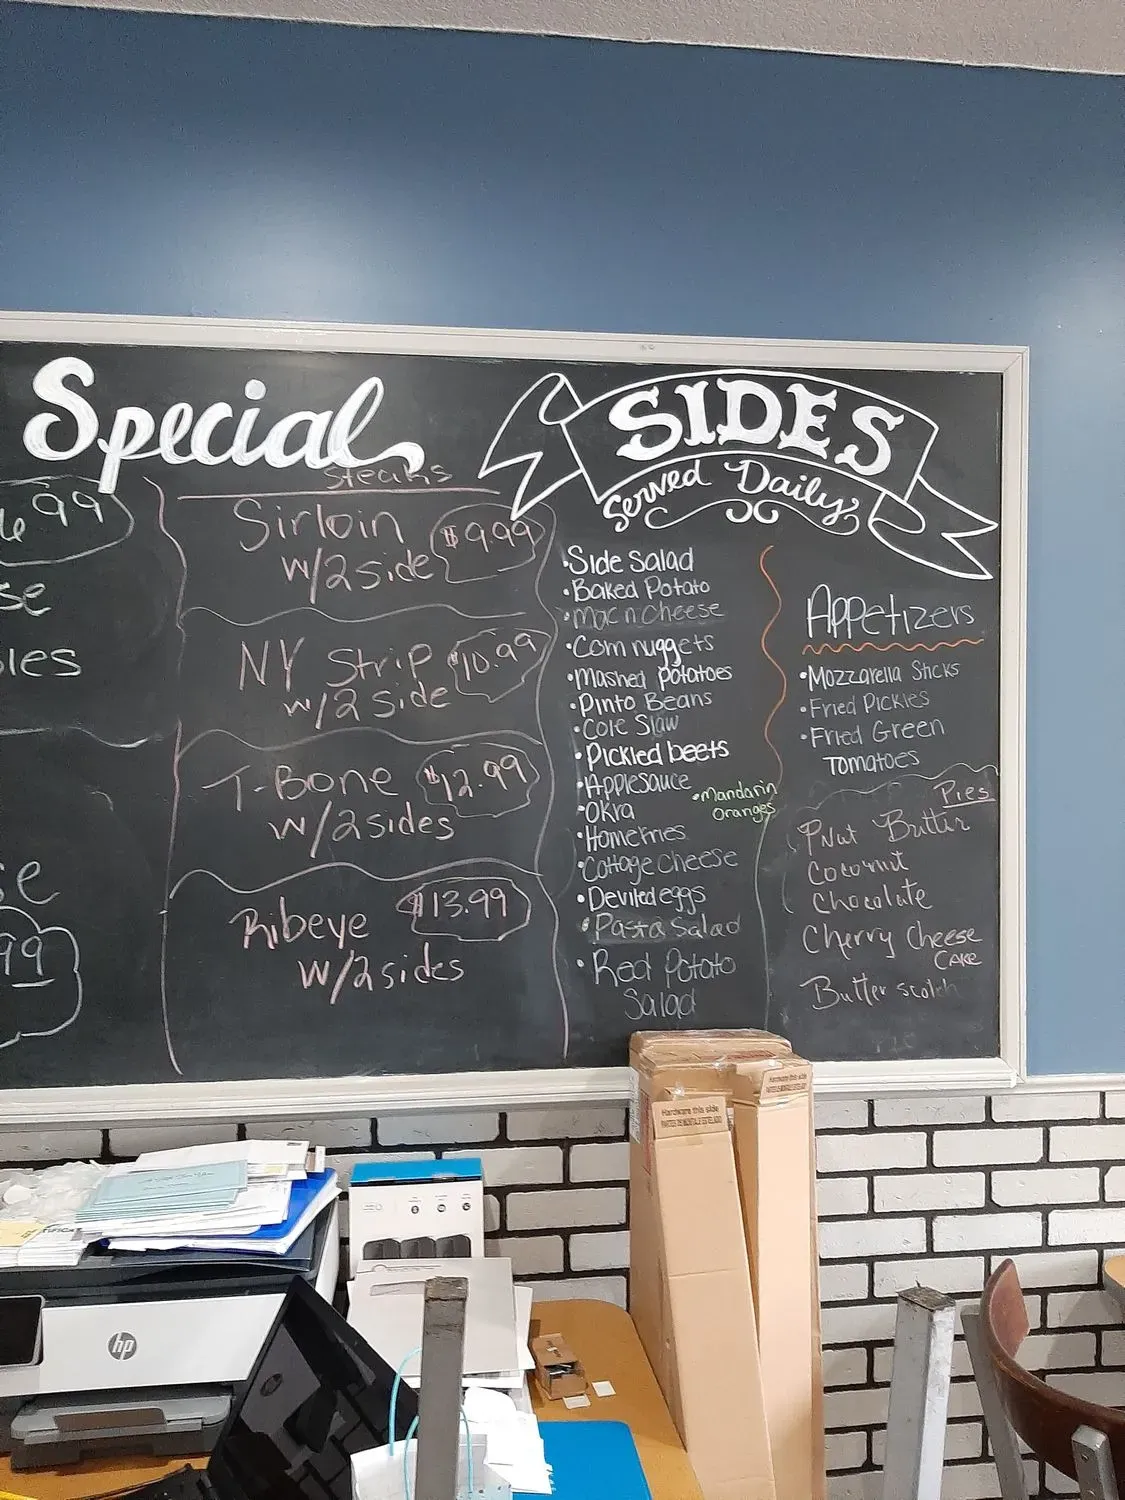 Special
99
se
les
se
99
steaks
Sirloin $9.99
w/2 side
NY Strip $10.99
w/2 side
T-Bone $12.99
w/2 sides
Ribeye $13.99
w/2 sides
SIDES
Served Daily
• Side Salad
• Baked Potato
• Mac n Cheese
• Corn nuggets
• Mashed potatoes
• Pinto Beans
• Cole Slaw
• Pickled beets
• Applesauce
• Mandarin
Oranges
• Okra
• Homefries
• Cottage Cheese
• Deviled eggs
• Pasta Salad
• Red Potato
Salad
Appetizers
• Mozzarella Sticks
• Fried Pickles
• Fried Green
Tomatoes
Pies
PNut Butter
Coconut
Chocolate
Cherry Cheese
Cake
Butter scotch
Hardware this side
Hardware this side
hp